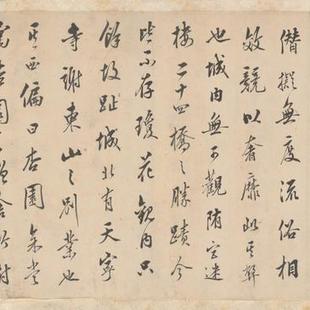 僭擬無度流俗相
效競以奢靡此其弊
也城内無可觀隋宫迷
樓二十四橋之勝蹟今
皆不存瓊花觀内只
餘故趾城北有天寧
寺謝東山之别業也
其西偏曰杏園